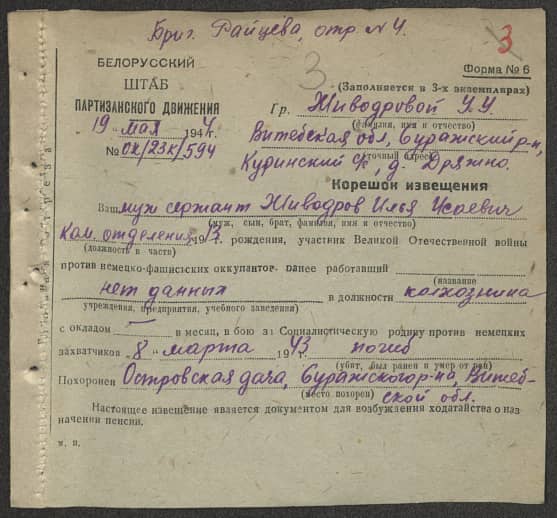 Бриг. Райцева, отр. №4.
3
3
БЕЛОРУССКИЙ
ШТАБ
ПАРТИЗАНСКОГО ДВИЖЕНИЯ
19 " мая 194 4 г.
№ ОК/23к/594
Форма № 6
(Заполняется в 3-х экземплярах)
Гр. Живодровой У.У.
(фамилия, имя и отчество)
Витебская обл, Суражский р-н,
(точный адрес)
Кудинский с/с, д. Дряжно.
Корешок извещения
Ваш муж сержант Живодров Илья Исаевич
(муж, сын, брат, фамилия, имя и отчество)
Ком. отделения, 1913 г. рождения, участник Великой Отечественной войны
(должность в части)
против немецко-фашистских оккупантов, ранее работавший
(название
нет данных в должности колхозника
учреждения, предприятия, учебного заведения)
с окладом — в месяц, в бою за Социалистическую родину против немецких
захватчиков " 8 " марта 194 43 погиб
(убит, был ранен и умер от ран)
Похоронен Островская дача, Суражского р-на, Витеб-
(место похорон)
ской обл.
Настоящее извещение является документом для возбуждения ходатайства о наз-
начении пенсии.
м. п.